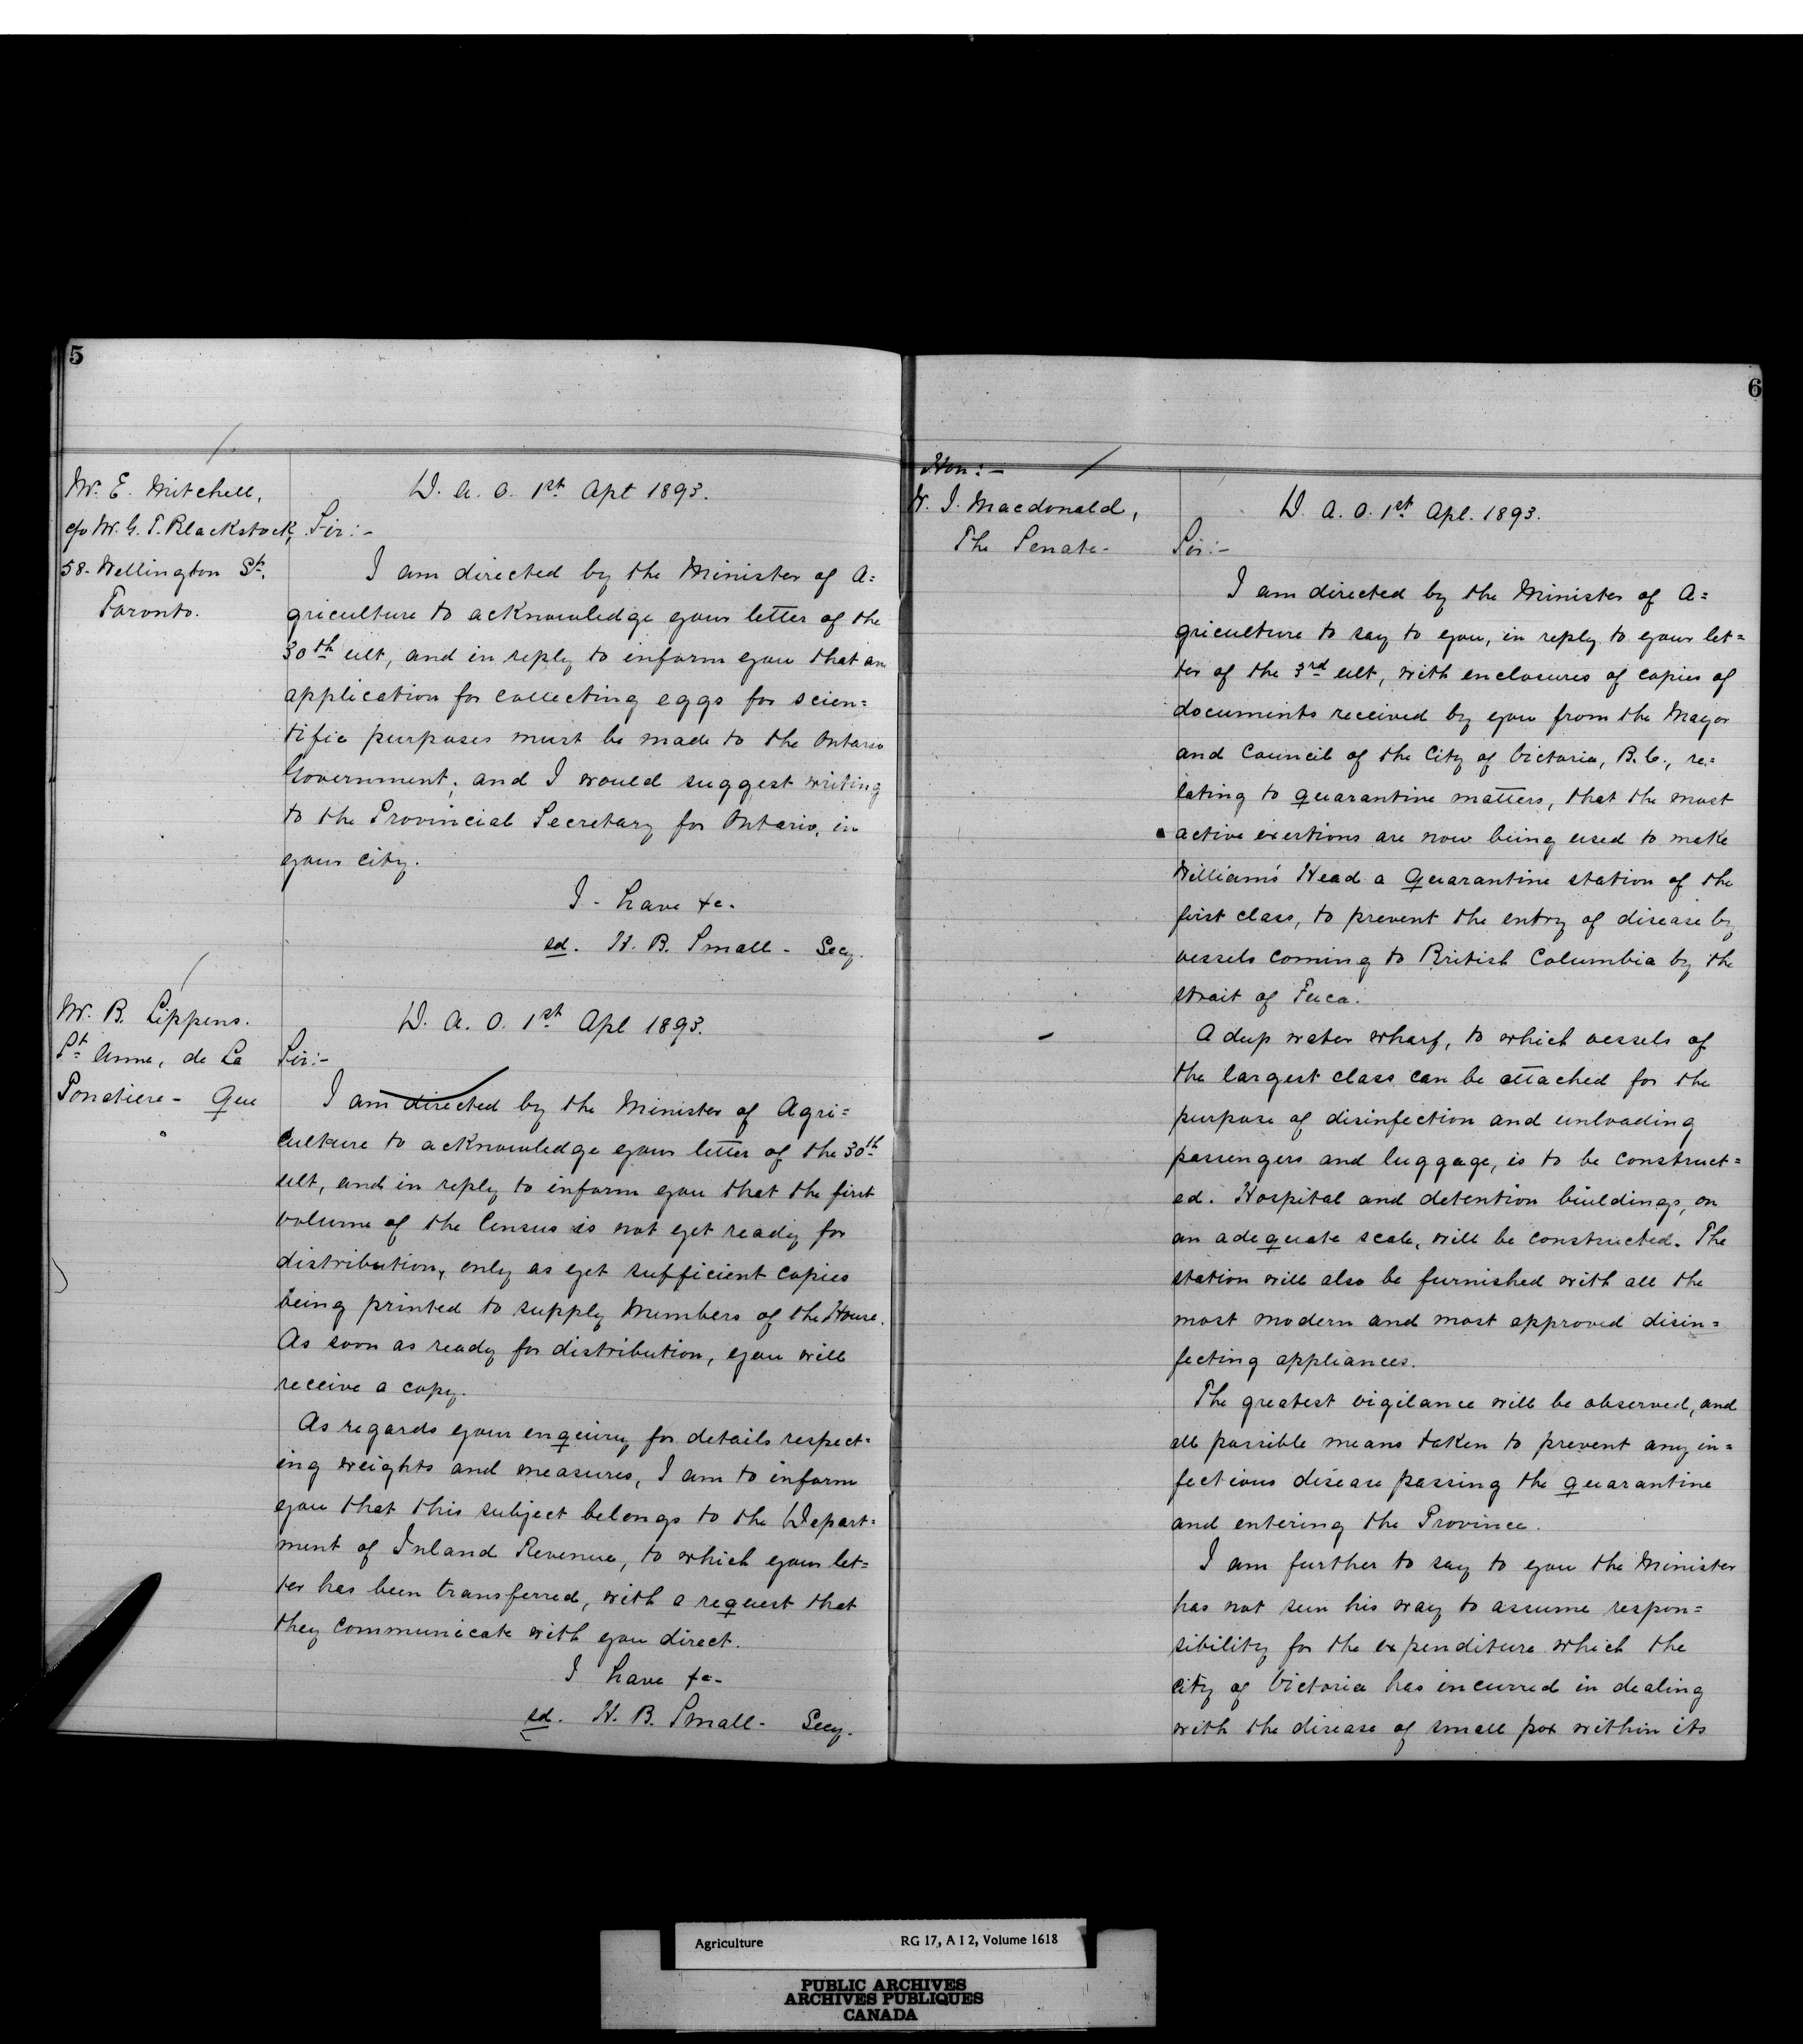 5
Mr. E. Mitchell,
c/o Mr. G. T. Blackstock,
58 - Wellington St.
Toronto.
D. A. O. 1st Apl 1893.
Sir:-
I am directed by the Minister of A=
griculture to acknowledge your letter of the
30th ult, and in reply to inform you that an
application for collecting eggs for scien=
tific purposes must be made to the Ontario
Government; and I would suggest writing
to the Provincial Secretary for Ontario, in
your city.
I - have &c.
sd. H. B. Small - Secy.
Mr. B. Lippens.
St Anne, de La
Pocatiere - Que
D. A. O. 1st Apl 1893.
Sir:-
I am directed by the Minister of Agri=
culture to acknowledge your letter of the 30th
ult, and in reply to inform you that the first
volume of the Census is not yet ready for
distribution, only as yet sufficient copies
being printed to supply Members of the House.
As soon as ready for distribution, you will
receive a copy.
As regards your enquiry for details respect=
ing weights and measures, I am to inform
you that this subject belongs to the Depart=
ment of Inland Revenue, to which your let=
ter has been transferred, with a request that
they communicate with you direct.
I have &c-
sd. H. B. Small - Secy.
6
Hon:-
W. J. Macdonald,
The Senate-
D. A. O. 1st Apl. 1893.
Sir:-
I am directed by the Minister of A=
griculture to say to you, in reply to your let=
ter of the 3rd ult, with enclosures of copies of
documents received by you from the Mayor
and Council of the City of Victoria, B.C., re=
lating to quarantine matters, that the most
active exertions are now being used to make
William's Head a Quarantine station of the
first class, to prevent the entry of disease by
vessels coming to British Columbia by the
strait of Fuca.
A deep water wharf, to which vessels of
the largest class can be attached for the
purpose of disinfection and unloading
passengers and luggage, is to be construct=
ed. Hospital and detention buildings, on
an adequate scale, will be constructed. The
station will also be furnished with all the
most modern and most approved disin=
fecting appliances.
The greatest vigilance will be observed, and
all possible means taken to prevent any in=
fectious disease passing the quarantine
and entering the Province.
I am further to say to you the Minister
has not seen his way to assume respon=
sibility for the expenditure which the
city of Victoria has incurred in dealing
with the disease of small pox within its
Agriculture RG 17, A I 2, Volume 1618
PUBLIC ARCHIVES
ARCHIVES PUBLIQUES
CANADA